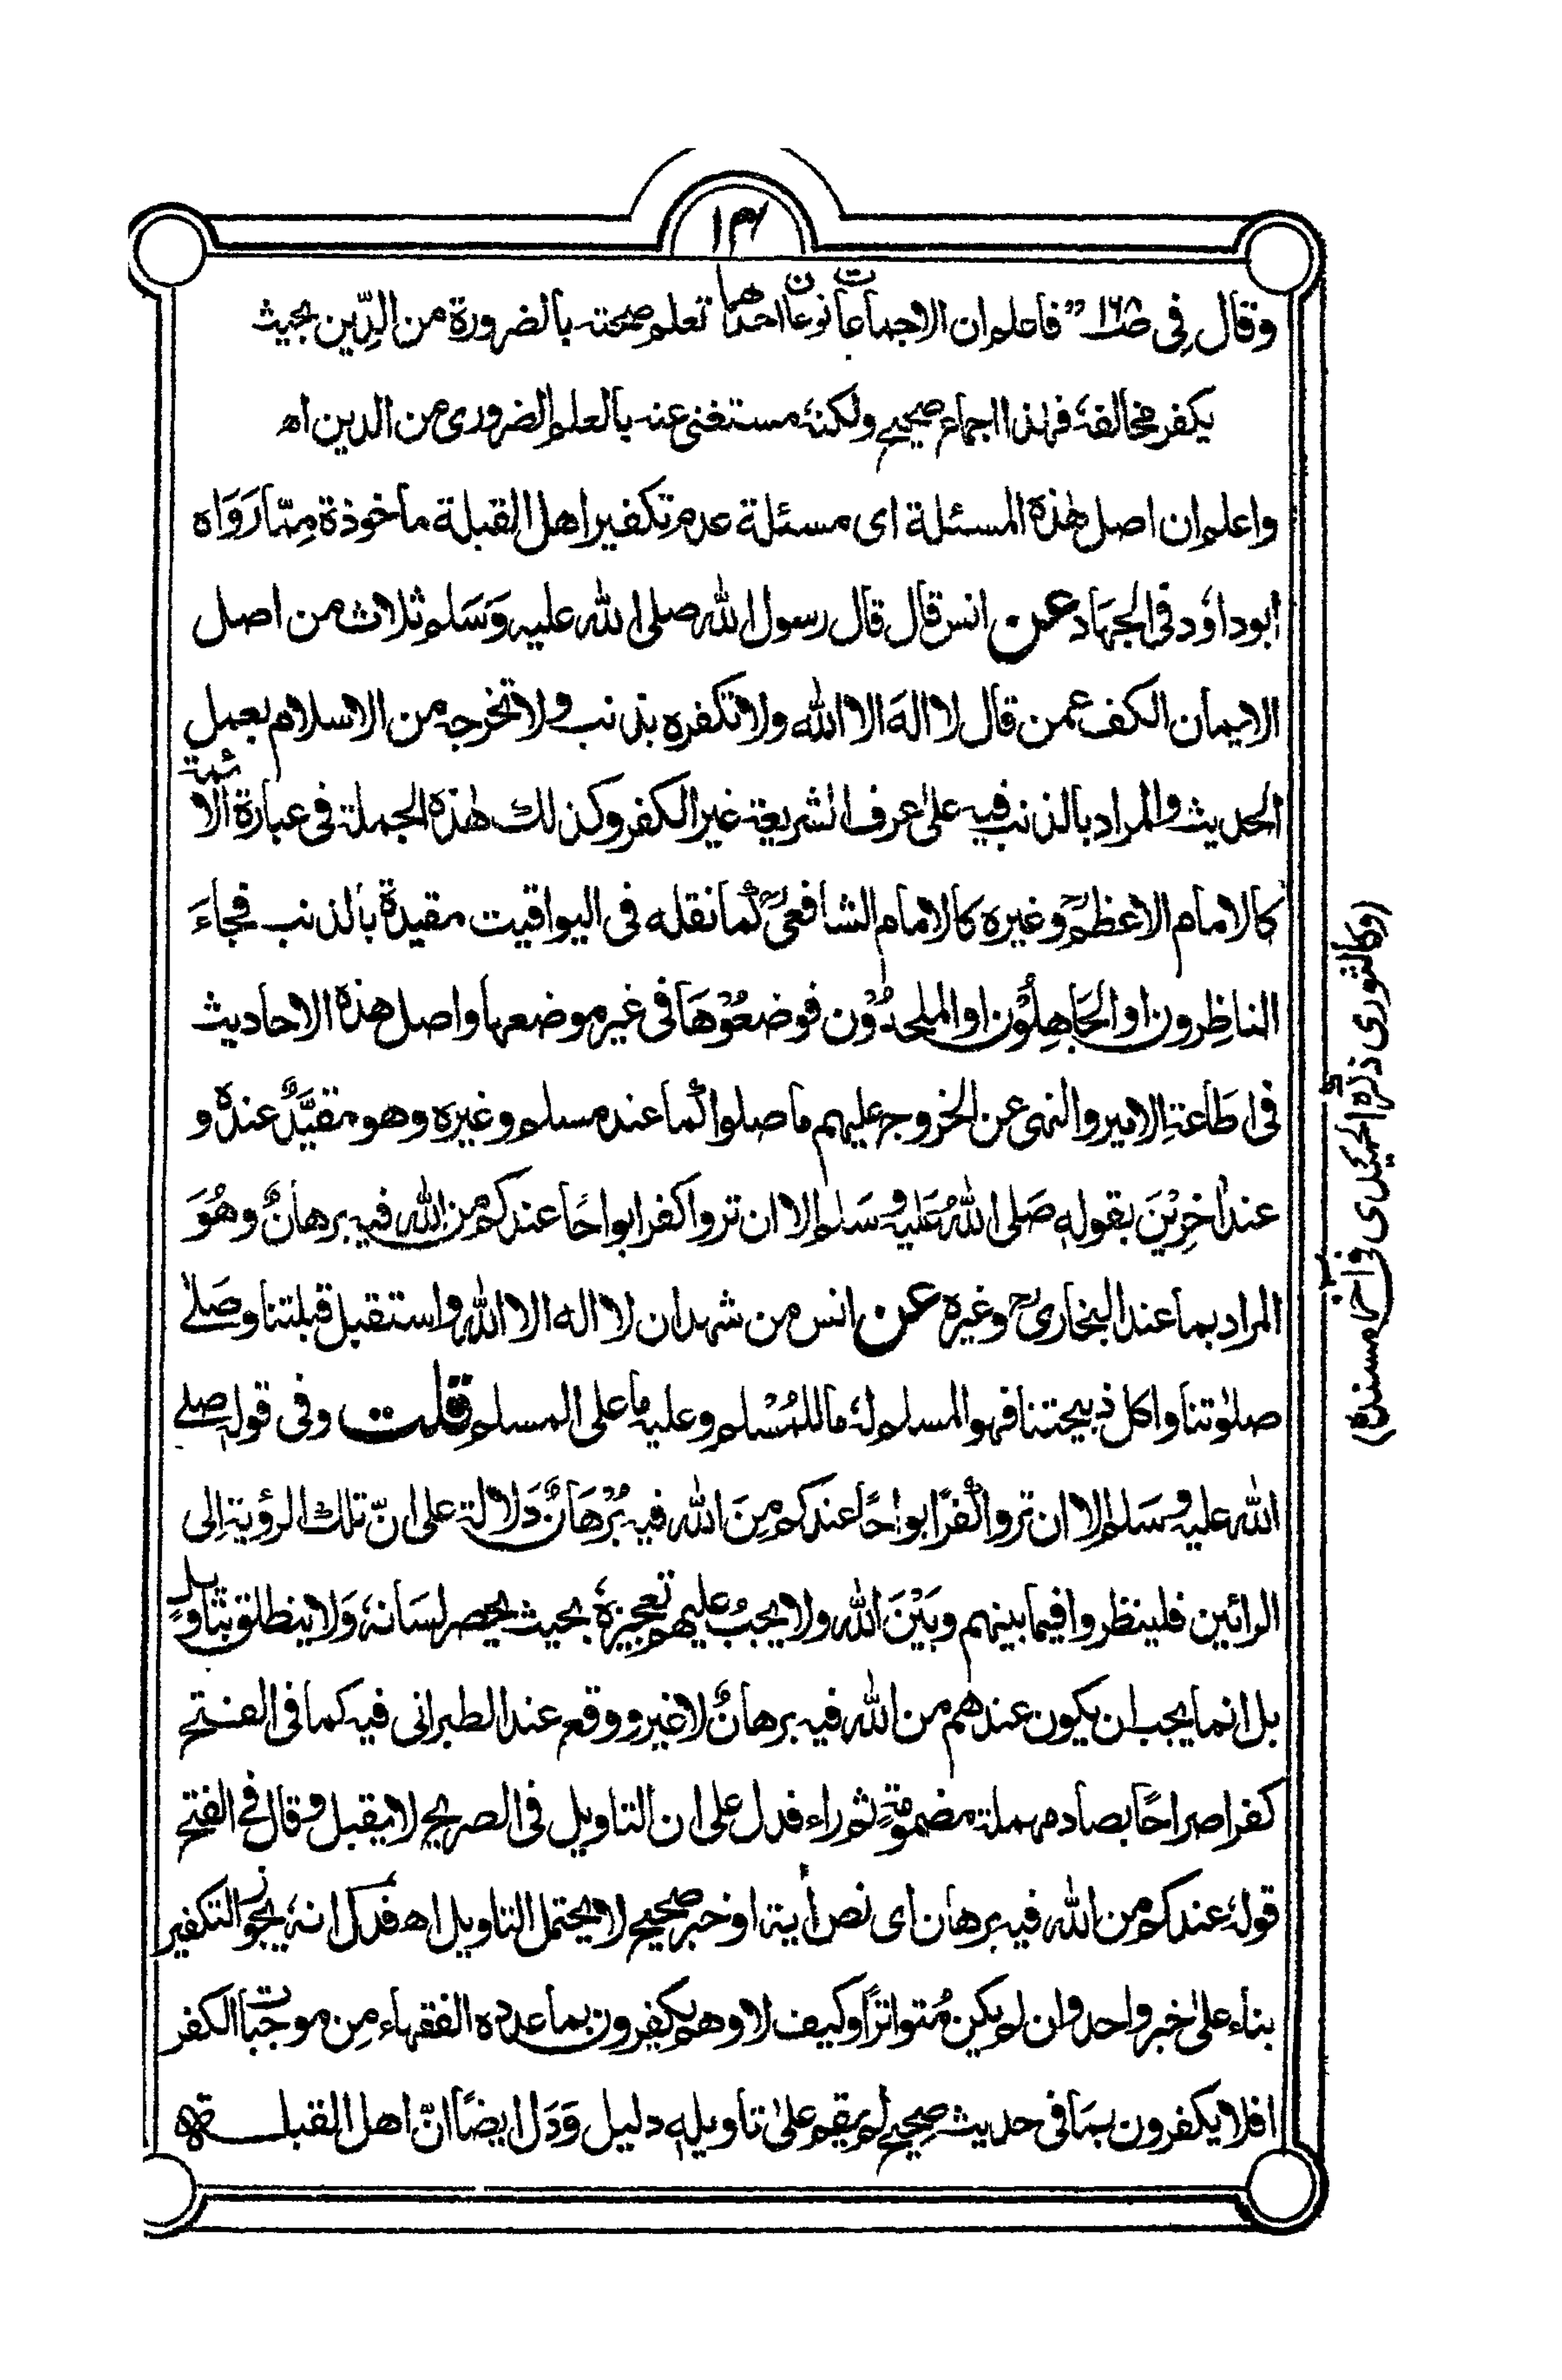 ۱۴
وقال فی ص۱۶۸ "فاعلم ان الاجماعات نوعان احدها تعلم صحته بالضرورة من الدِّین بحیث
یکفر مخالفهٗ فهذا اجماع صحیح ولکنهٗ مستغنی عنه بالعلم الضروری من الدین اه
واعلم ان اصل هٰذه المسئلة ای مسئلة عدم تکفیر اهل القبلة ماخوذة مِمّا رَوَاه
ابوداوٗد فی الجهَاد عن انس قال قال رسول الله صلی الله علیه وَسَلم ثلاث من اصل
الایمان الکف عمن قال لا الهَ الا الله ولا نکفره بذنب ولا نخرجه من الاسلام بعمل
الحدیث والمراد بالذنب فیه علی عرف الشریعة غیر الکفر وکذلك هٰذه الجملة فی عبارة الائمة
کالامام الاعظمؒ وغیره کالامام الشافعیؒ کما نقله فی الیواقیت مقیدة بالذنب فجاءَ
الناظِرون او الجَاهِلُوْن او الملحدُوْن فوضعُوْهَا فی غیر موضعها واصل هذه الاحادیث
فی اطَاعة الامیر والنهی عن الخروج علیهم ما صلوا کما عند مسلم وغیره وهو مقیَّدٌ عندهٗ و
عند اٰخرِیْنَ بقولهٖ صَلی اللهُ عَلیه وسَلم الا ان تروا کفرا بواحًا عندکم من الله فیه برهانٌ وهُوَ
المراد بما عند البخاریؒ وغیره عن انس من شهد ان لا اله الا الله واستقبل قبلتنا وصَلّٰے
صلوٰتنا واکل ذبیحتنا فهو المسلم لهٗ ما للمُسْلم وعلیه ما علی المسلم قلت وفی قولهٖ صلے
الله علیه وسَلم الا ان تروا کُفرًا بواحًا عندکم مِنَ الله فیه بُرْهَانٌ دَلالة علی انّ تلك الرؤیة اِلی
الرائین فلینظروا فیما بینهم وبَیْنَ الله ولا یجبُ علیهم تعجیزهٗ بحیث یحصر لسَانهٗ وَلا ینطلق بتاویلٍ
بل انما یجب ان یکون عندهم من الله فیه برهانٌ لا غیر ووقع عند الطبرانی فیه کما فی الفتح
کفرا صراحًا بصاد مهملة مضمومةٍ ثم راء فدل علی ان التاویل فی الصریح لا یقبل وقال فے الفتح
قولهٗ عندکم من الله فیه برهان ای نص اٰیة او خبر صحیح لا یحتمل التاویل اھ فدَل انهٗ یجوز التکفیر
بناء علیٰ خبر واحد وان لم یکن مُتواترًا وکیف لا وهم یکفرون بما عدده الفقهاء مِن موجبات الکفر
افلا یکفرون بمَا فی حدیث صحیح لم یقم علیٰ تاویلهٖ دلیل وَدَل ایضًا انّ اهل القبلة
(وکالثوری ذکره الحمیدی فی اٰخر مسنده)